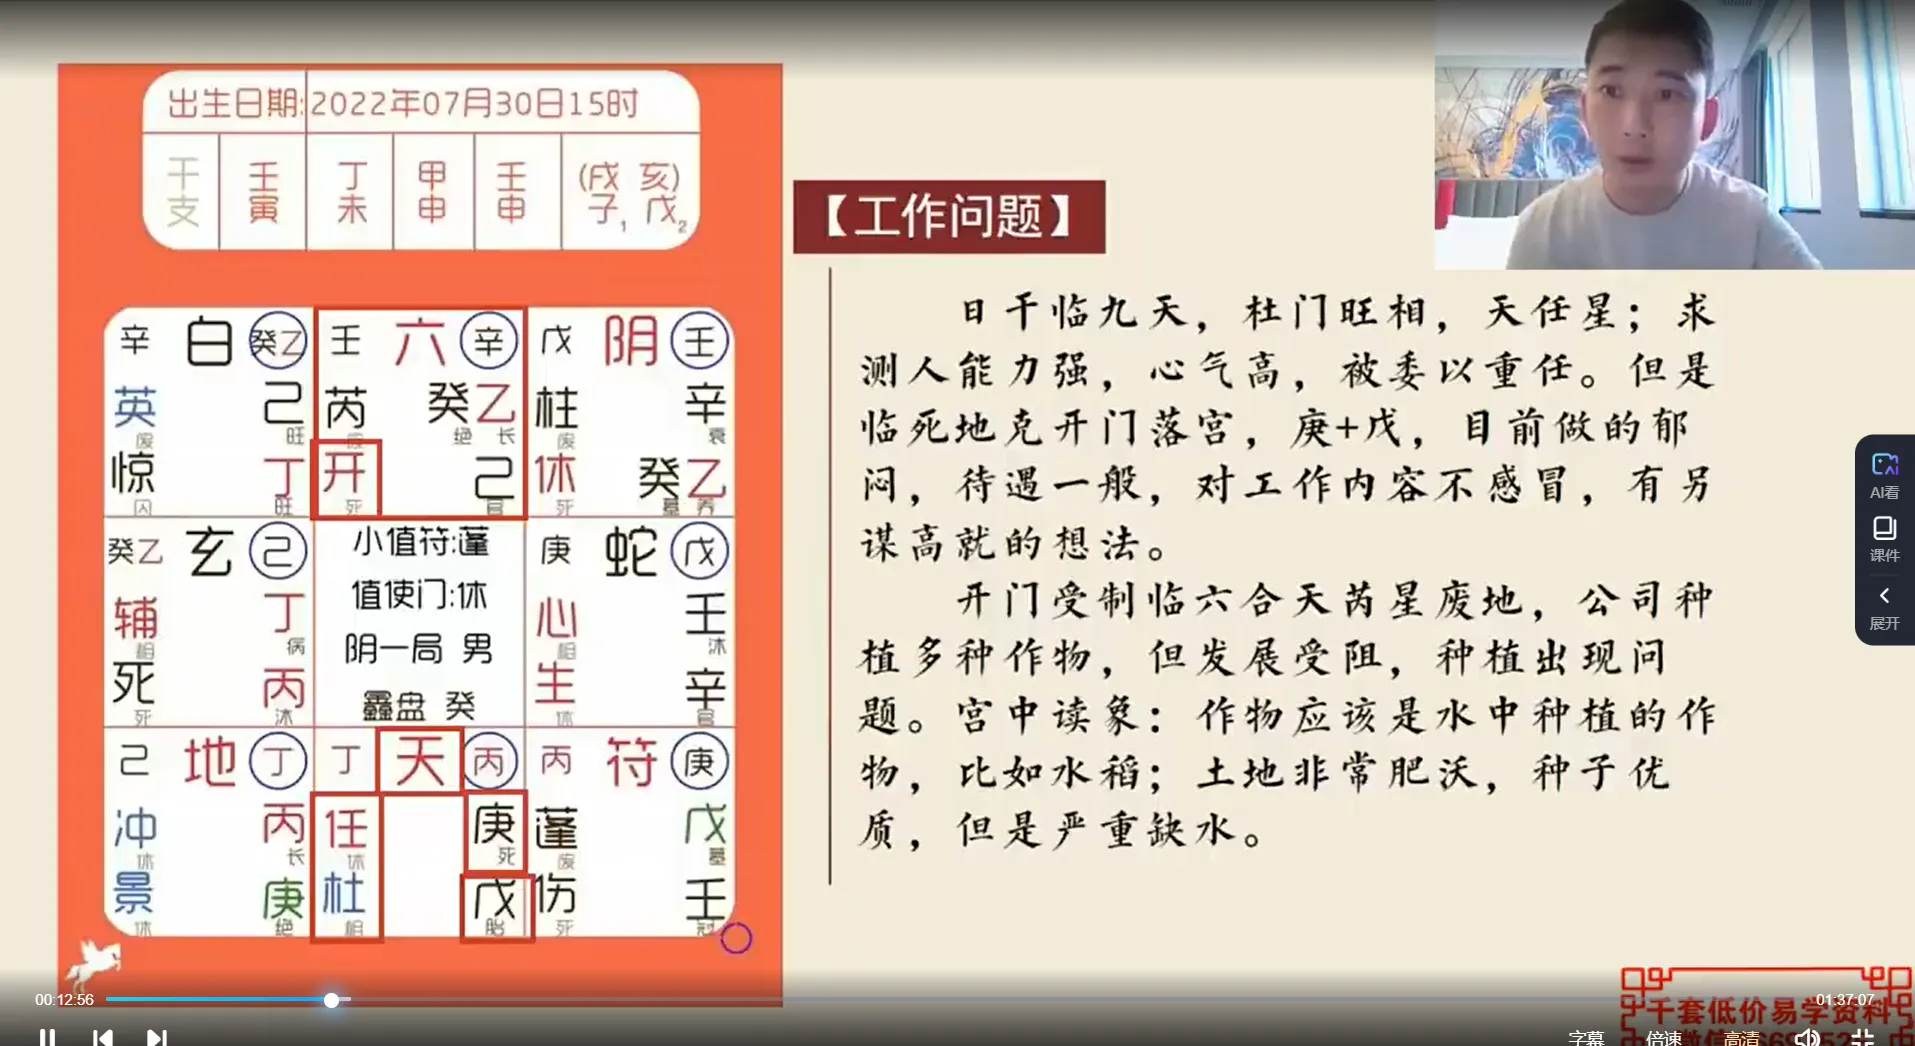 出生日期:2022年07月30日15时
干支 壬寅 丁未 甲申 壬申 (戌亥)
子1 戊2
【工作问题】
辛 白 癸乙 壬 六 辛 戊 阴 壬
英 己 芮 癸乙 柱 辛
废 旺 废 绝 长 废 衰
惊 丁 开 己 休 癸乙
囚 旺 死 官 死 墓 养
癸乙 玄 己 小值符:蓬 庚 蛇 戊
辅 丁 值使门:休 心 壬
相 病 相 沐
死 丙 阴一局 男 生 辛
死 沐 鑫盘 癸 休 官
己 地 丁 丁 天 丙 丙 符 庚
冲 丙 任 庚 蓬 戊
休 长 休 死 废 墓
景 庚 杜 戊 伤 壬
休 绝 相 胎 死 冠
日干临九天，杜门旺相，天任星；求
测人能力强，心气高，被委以重任。但是
临死地克开门落宫，庚+戊，目前做的郁
闷，待遇一般，对工作内容不感冒，有另
谋高就的想法。
开门受制临六合天芮星废地，公司种
植多种作物，但发展受阻，种植出现问
题。宫中读象：作物应该是水中种植的作
物，比如水稻；土地非常肥沃，种子优
质，但是严重缺水。
AI看
课件
展开
00:12:56
01:37:07
千套低价易学资料
字幕 倍速 高清